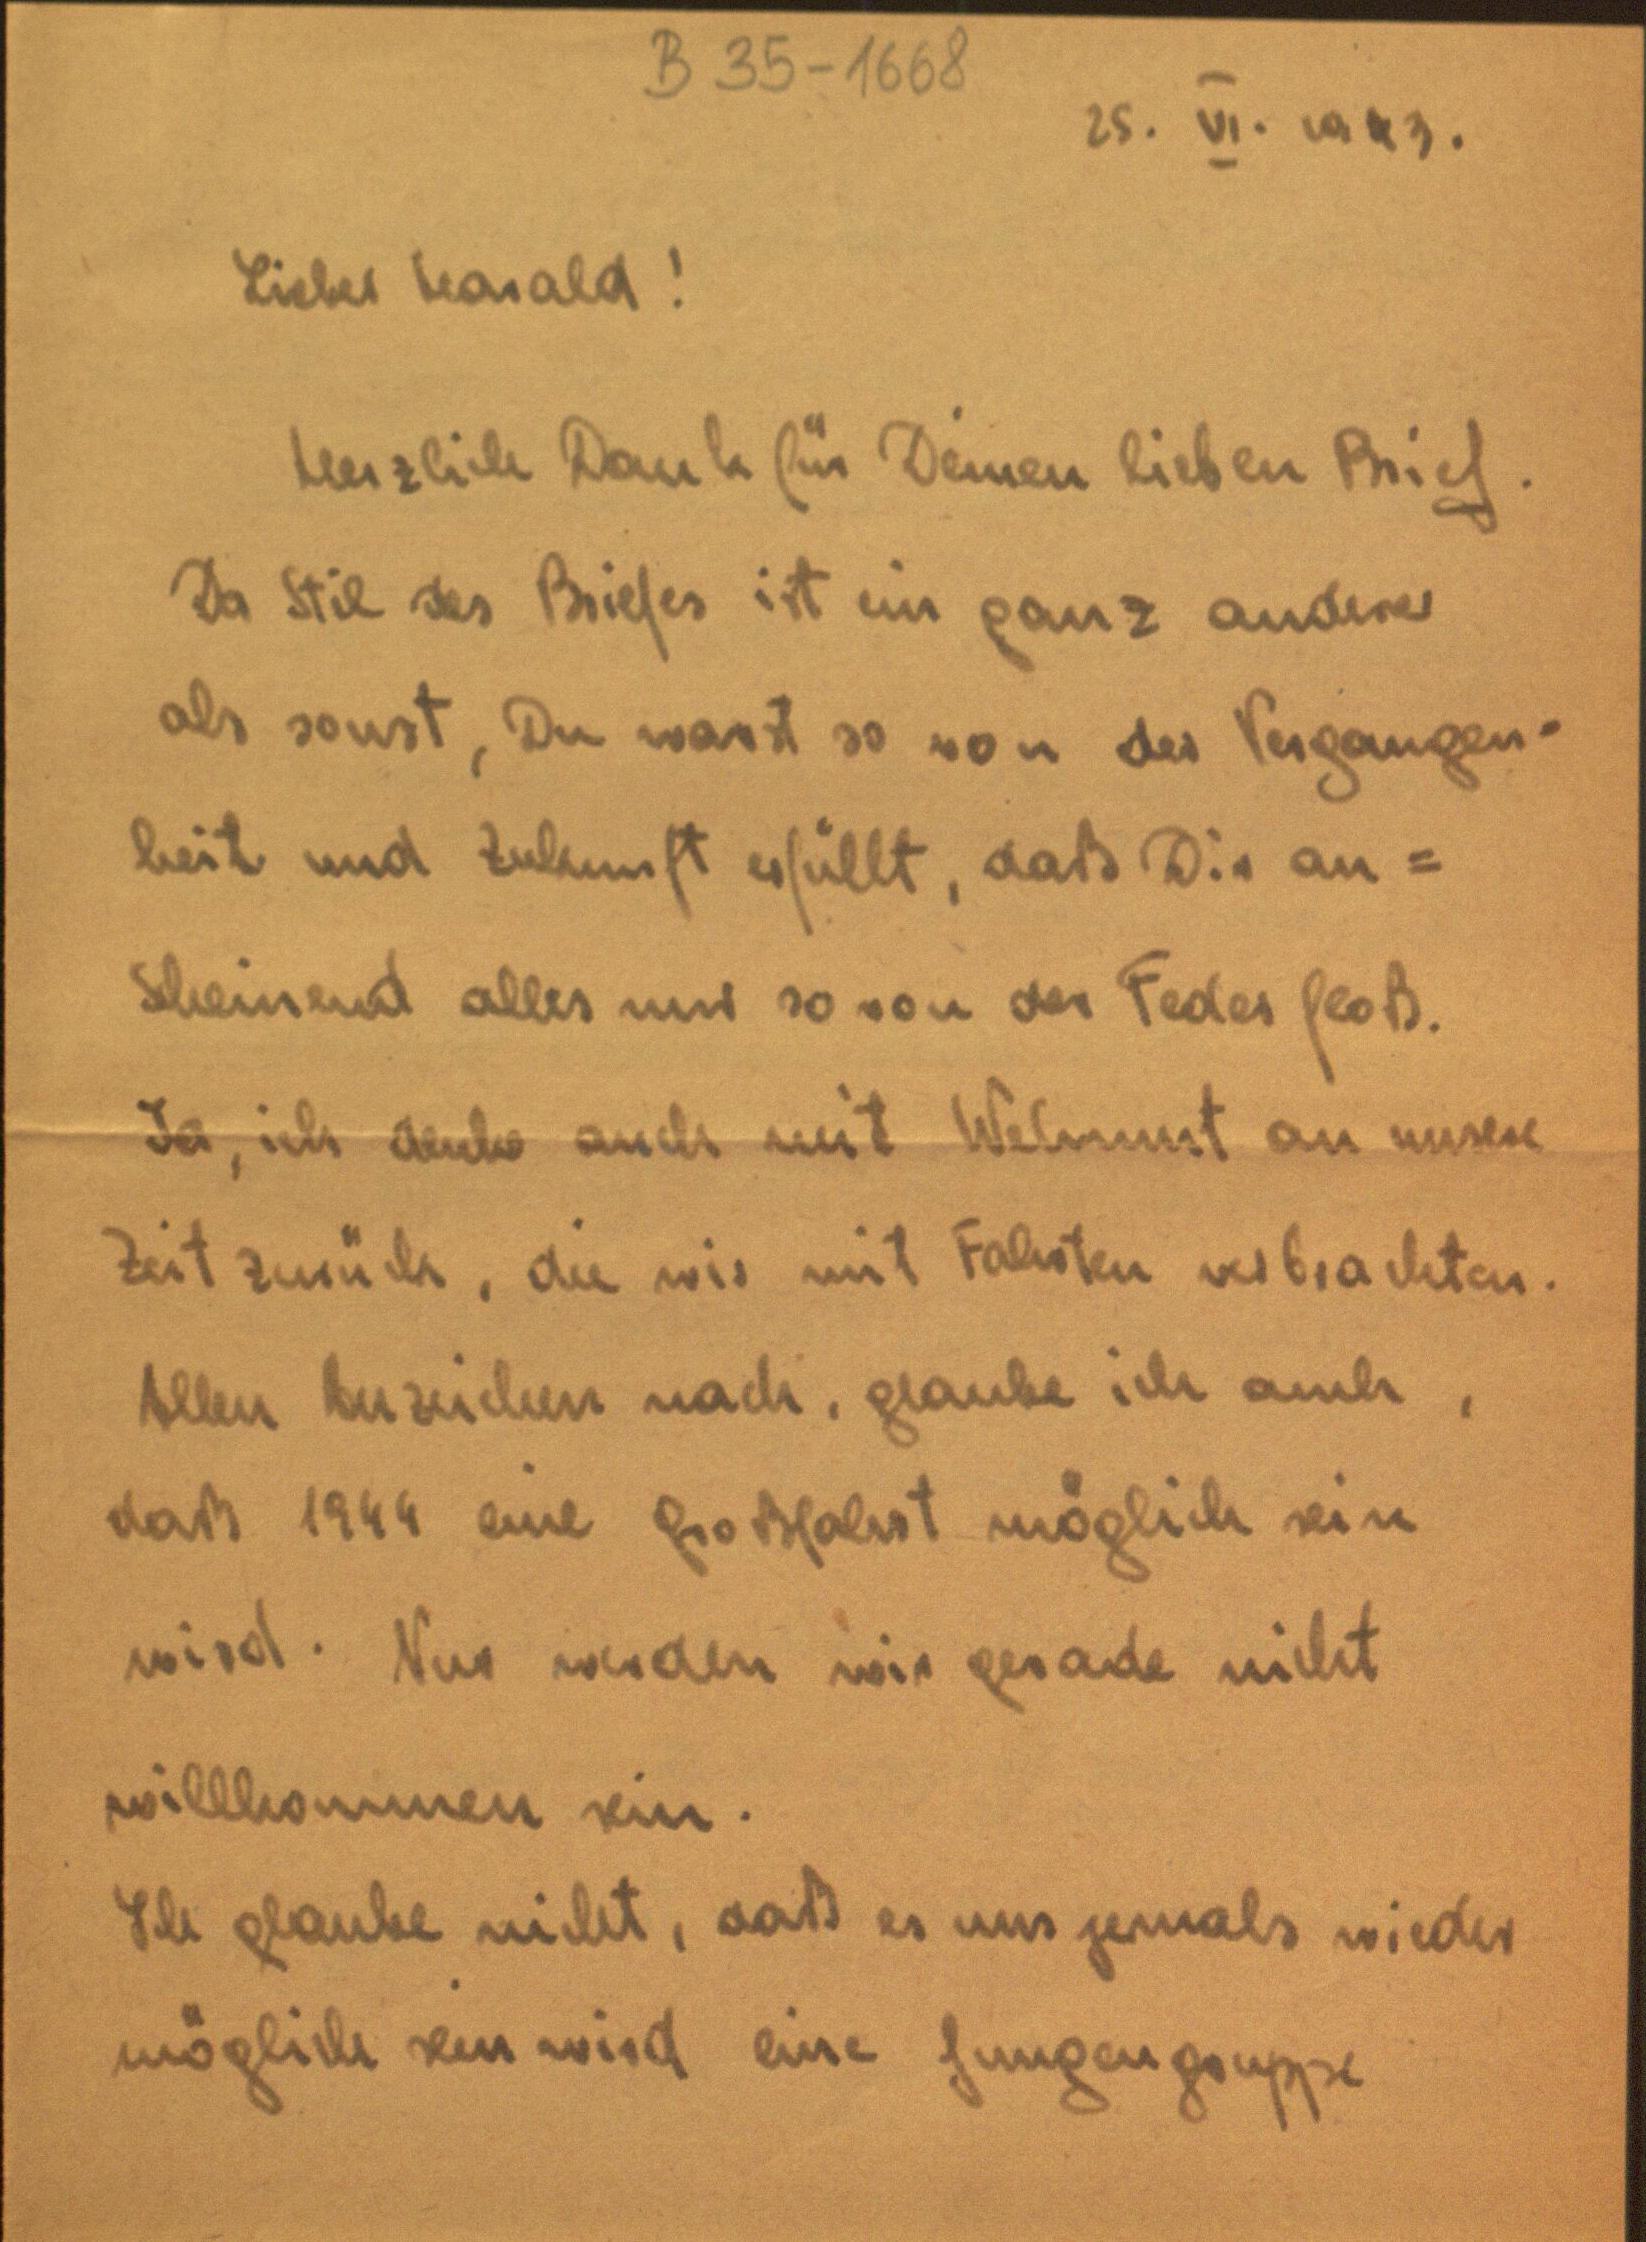 B 35-1668
25. VI. 1943.
Lieber Harald!
Herzlich Dank für Deinen lieben Brief.
Der Stil des Briefes ist ein ganz anderer
als sonst, Du warst so von der Vergangen-
heit und Zukunft erfüllt, daß Dir an=
scheinend alles nur so von der Feder floß.
Ja, ich denke auch mit Wehmut an unsere
Zeit zurück, die wir mit Fahrten verbrachten.
Allen Anzeichen nach, glaube ich auch,
daß 1944 eine Großfahrt möglich sein
wird. Nur werden wir gerade nicht
willkommen sein.
Ich glaube nicht, daß es uns jemals wieder
möglich sein wird eine Jungengruppe